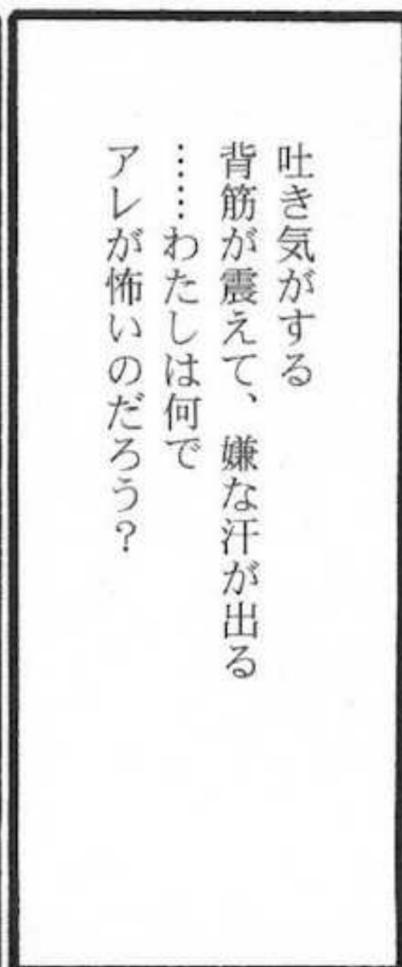 吐き気がする
背筋が震えて、嫌な汗が出る
……わたしは何で
アレが怖いのだろう?